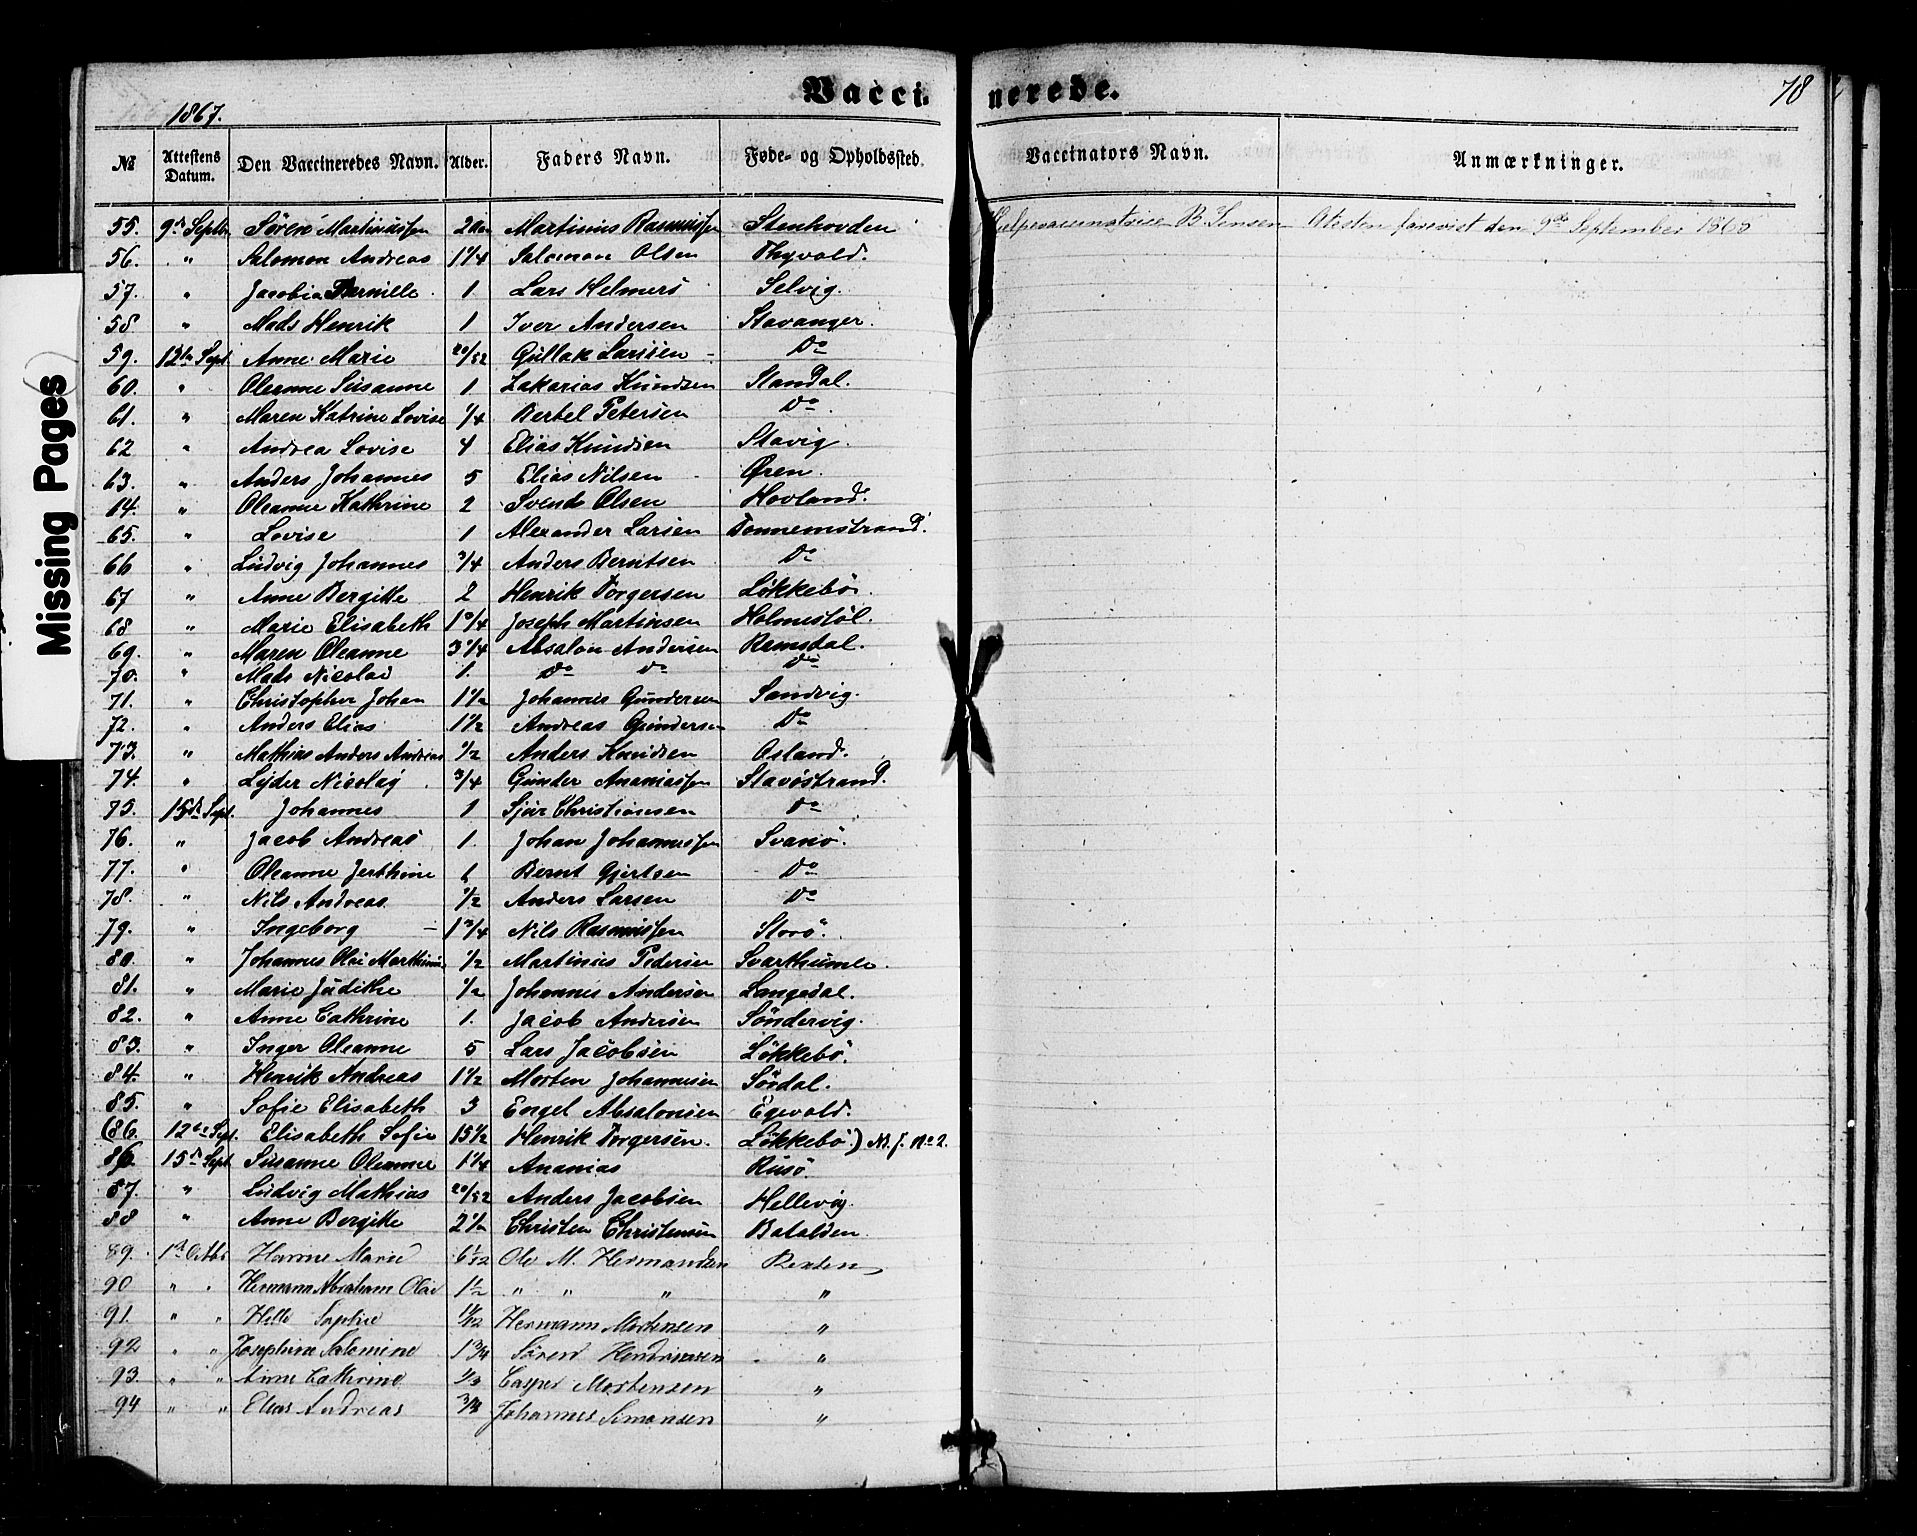 Vaccinerede.
78
1867.
№ Attestens Datum. Den Vaccineredes Navn. Alder. Faders Navn. Føde- og Opholdssted. Vaccinators Navn. Anmærkninger.
55. 9de Septbr Sören Martinussen 2 Martinus Rasmussen Stenhovden B. Jensen Atesten forevist den 9de September
56. " Salomon Andreas 1 1/4 Salomon Olsen Thyvold.
57. " Jacobia Pernille 1. Lars Helmers Selvig.
58 " Mads Henrik 1 Iver Andersen Stavanger.
59. 12te Sept. Anne Marie 20/52 Gullak Larssen Do
60. " Oleanne Susanne 1 Zakarias Knudsen Standal.
61. " Maren Katrine Lovise 1/4 Bertel Petersen Do
62 " Andrea Lovise 4 Elias Knudsen Stavig.
63. " Anders Johannes 5 Elias Nilsen Øren.
64. " Oleanne Kathrine 2 Svend Olsen Hovland.
65. " Lovise 1 Alexander Larsen Tonnemstrand.
66 " Ludvig Johannes 3/4 Anders Berntsen Do
67 " Anne Bergitte 2 Henrik Torgersen Løkkebö.
68 " Marie Elisabeth 1 3/4 Joseph Martinsen Holmestöl.
69. " Maren Oleanne 3 1/4 Absalon Andersen Remsdal.
70. " Mads Nicolai 1. Do Do Do
71. " Christopher Johan 1 1/2 Johannes Gundersen Sandvig.
72. " Anders Elias 1 1/2 Andreas Gundersen Do
73. " Mathias Anders Andreas 1/2 Anders Knudsen Osland.
74. " Lyder Nicolay 3/4 Gunder Ananiassen Stavöstrand.
75. 15de Sept. Johannes 1 Sjur Christiansen Do
76. " Jacob Andreas 1. Johan Johannessen Svanö.
77. " Oleanne Jerthine 1 Bernt Gjertsen Do
78. " Nils Andreas 1/2 Anders Larsen Do
79. " Ingeborg 1 3/4 Nils Rasmussen Storö.
80. " Johannes Olai 1/2 Martinus Pedersen Svarthumle.
81. " Marie Judithe 1/2 Johannes Andersen Langedal.
82. " Anne Cathrine 1. Jacob Andersen Söndervig.
83. " Inger Oleanne 5 Lars Jacobsen Løkkebö.
84. " Henrik Andreas 1 1/2 Morten Johannesen Sördal.
85. " Sofie Elisabeth 3 Engel Absalonsen Egevold.
(86. 12te Sept. Elisabeth Sofie 15 1/2 Henrik Torgersen. Løkkebö.) No 2.
86. 15de Sept Susanne Oleanne 1 1/4 Ananias Rusö
87. " Ludvig Mathias 20/52 Anders Jacobsen Hellevig
88 " Anne Bergitte 2 1/2 Christen Christensen Batalden
89. 1ste Octbr Hanne Marie 6 Ole M. Hermansen
90 " " Hermann Abraham Olai 1 1/2 " " " "
91. " " Sophie Hermann Mortensen "
92 " " Josephine Salomine 1 3/4 Sören "
93. " " Anne Cathrine 1/3 Casper Mortensen "
94 " " Elias Andreas 3/4 Johannes Simonsen "
Missing Pages